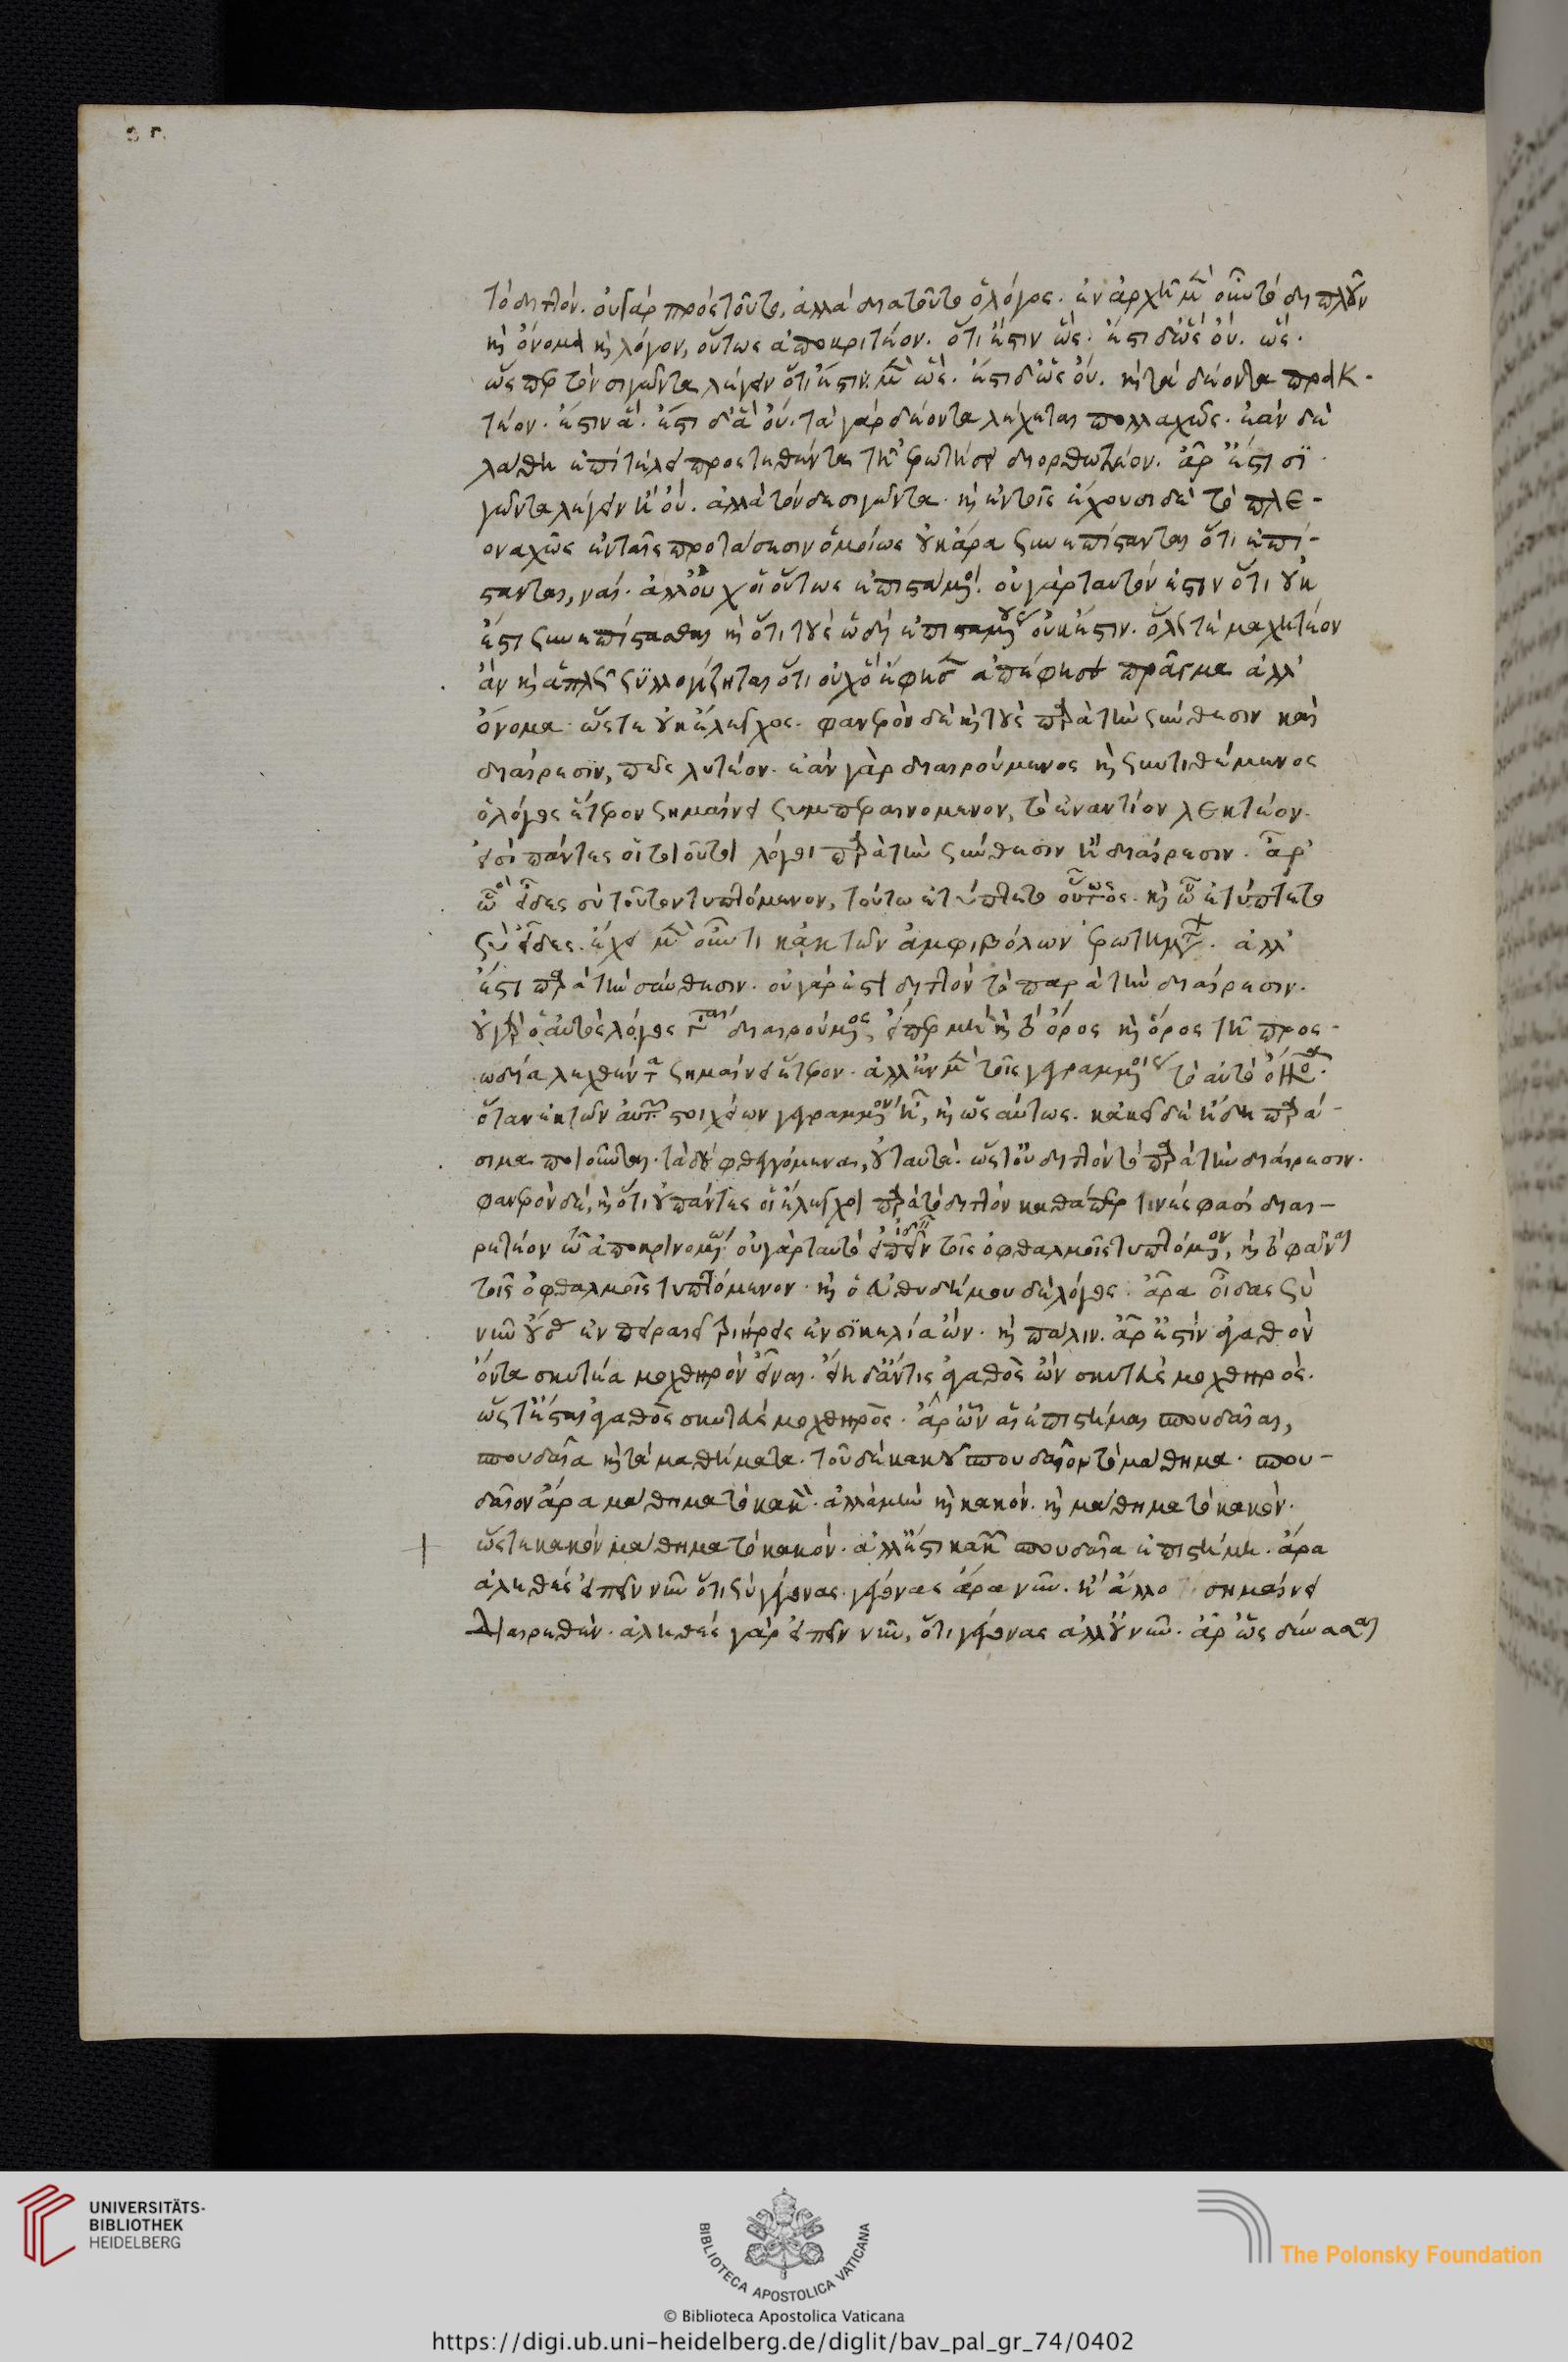 τὸ διττόν. οὐ γὰρ πρὸς τοῦτο, ἀλλὰ διὰ τοῦτο ὁ λόγος. ἐν ἀρχῆ μὲν οὖν τὸ διπλοῦν
καὶ ὄνομα καὶ λόγον, οὕτως ἀποκριτέον. ὅτι ἔστιν ὥς. ἔστι δ' ὡς οὔ. ὥς.
ὥσπερ τὸν σιγῶντα λέγειν ὅτι ἔστιν μὲν ὥς. ἔστι δ' ὡς οὔ. καὶ τὰ δέοντα πρακ-
τέον. ἔστιν ἅ. ἔστι δ' ἃ οὔ. τὰ γὰρ δέοντα λέγεται πολλαχῶς. ἐὰν δὲ
λάθη ἐπὶ τέλει προστεθέντα τῆ ἐρωτήσει διορθωτέον. ἆρ' ἔστι σϊ-
γῶντα λέγειν ἢ οὔ. ἀλλὰ τόνδε σιγῶντα. καὶ ἐν τοῖς ἔχουσι δὲ τὸ πλε-
οναχῶς ἐν ταῖς προτάσεσιν ὁμοίως οὐκ ἄρα συνεπίστανται ὅτι ἐπί-
στανται, ναί. ἀλλ' οὐχ οἱ οὕτως ἐπιστάμενοι. οὐ γὰρ ταυτόν ἐστιν ὅτι οὐκ
ἔστι συνεπίστασθαι καὶ ὅτι τοὺς ὡδὶ ἐπισταμένους οὐκ ἔστιν. ὅλως τε μαχετέον
ἂν καὶ ἁπλῶς συλλογίζηται ὅτι οὐχ ὃ ἔφησεν ἀπέφησε πρᾶγμα ἀλλ'
ὄνομα. ὥστε οὐκ ἔλεγχος. φανερὸν δὲ καὶ τοὺς παρὰ τὴν σύνθεσιν καὶ
διαίρεσιν, πῶς λυτέον. ἐὰν γὰρ διαιρούμενος καὶ συντιθέμενος
ὁ λόγος ἕτερον σημαίνει συμπεραινόμενον, τὸ ἐναντίον λεκτέον.
εἰσὶ πάντες οἱ τοιοῦτοι λόγοι παρὰ τὴν σύνθεσιν ἢ διαίρεσιν. ἆρ'
ὧ εἶδες σὺ τοῦτον τυπτόμενον, τούτω ἐτύπτετο οὗτος. καὶ ὧ ἐτύπτετο
σὺ εἶδες. ἔχει μὲν οὖν τι κἀκ τῶν ἀμφιβόλων ἐρωτημάτων. ἀλλ'
ἔστι παρὰ τὴν σύνθεσιν. οὐ γάρ ἐστι διττὸν τὸ παρὰ τὴν διαίρεσιν.
οὐ γὰρ ὁ αὐτὸς λόγος γίνεται διαιρούμενος, εἴπερ μὴ καὶ τὸ ὄρος καὶ ὅρος τῆ προσ-
ωδία λεχθέντα σημαίνει ἕτερον. ἀλλ' ἐν μὲν τοῖς γεγραμμένοις τὸ αὐτὸ ὄνομα.
ὅταν ἐκ τῶν αὐτῶν στοιχείων γεγραμμένον ἦ, καὶ ὡσαύτως. κἀκεῖ δὲ ἤδη παρά-
σημα ποιοῦνται. τὰ δὲ φθεγγόμενα, οὐ ταυτά. ὥστ' οὐ διττὸν τὸ παρὰ τὴν διαίρεσιν.
φανερὸν δὲ, καὶ ὅτι οὐ πάντες οἱ ἔλεγχοι παρὰ τὸ διττὸν καθάπερ τινές φασι διαι-
ρετέον οὖν ἀποκρινομένω. οὐ γὰρ ταυτὸ εἰπεῖν ἰδεῖν τοῖς ὀφθαλμοῖς τυπτόμενον, καὶ τὸ φάναι
τοῖς ὀφθαλμοῖς τυπτόμενον. καὶ ὁ Εὐθυδήμου δὲ λόγος. ἆρα οἶδας σὺ
νῦν οὔσας ἐν πειραιεῖ τριήρεις ἐν σϊκελία ὤν. καὶ πάλιν. ἆρ' ἔστιν ἀγαθὸν
ὄντα σκυτέα μοχθηρὸν εἶναι. εἴη δ' ἄν τις ἀγαθὸς ὢν σκυτεὺς μοχθηρός.
ὥστ' ἔσται ἀγαθὸς σκυτεὺς μοχθηρός. ἆρ' ὧν αἱ ἐπιστῆμαι σπουδαῖαι,
σπουδαῖα καὶ τὰ μαθήματα. τοῦ δὲ κακοῦ σπουδαῖον τὸ μάθημα. σπου-
δαῖον ἄρα μάθημα τὸ κακόν. ἀλλὰ μὴν καὶ κακόν. καὶ μάθημα τὸ κακόν.
ὥστε κακὸν μάθημα τὸ κακόν. ἀλλ' ἔστι κακῶν σπουδαῖα ἐπιστήμη. ἆρα
ἀληθὲς εἰπεῖν νῦν ὅτι σὺ γέγονας. γέγονας ἄρα νῦν. ἢ ἄλλο σημαίνει
διαιρεθέν. ἀληθὲς γὰρ εἰπεῖν νῦν, ὅτι γέγονας ἀλλ' οὐ νῦν. ἆρ' ὡς δύνασαι
UNIVERSITÄTS-
BIBLIOTHEK
HEIDELBERG
BIBLIOTECA APOSTOLICA VATICANA
The Polonsky Foundation
© Biblioteca Apostolica Vaticana
https://digi.ub.uni-heidelberg.de/diglit/bav_pal_gr_74/0402